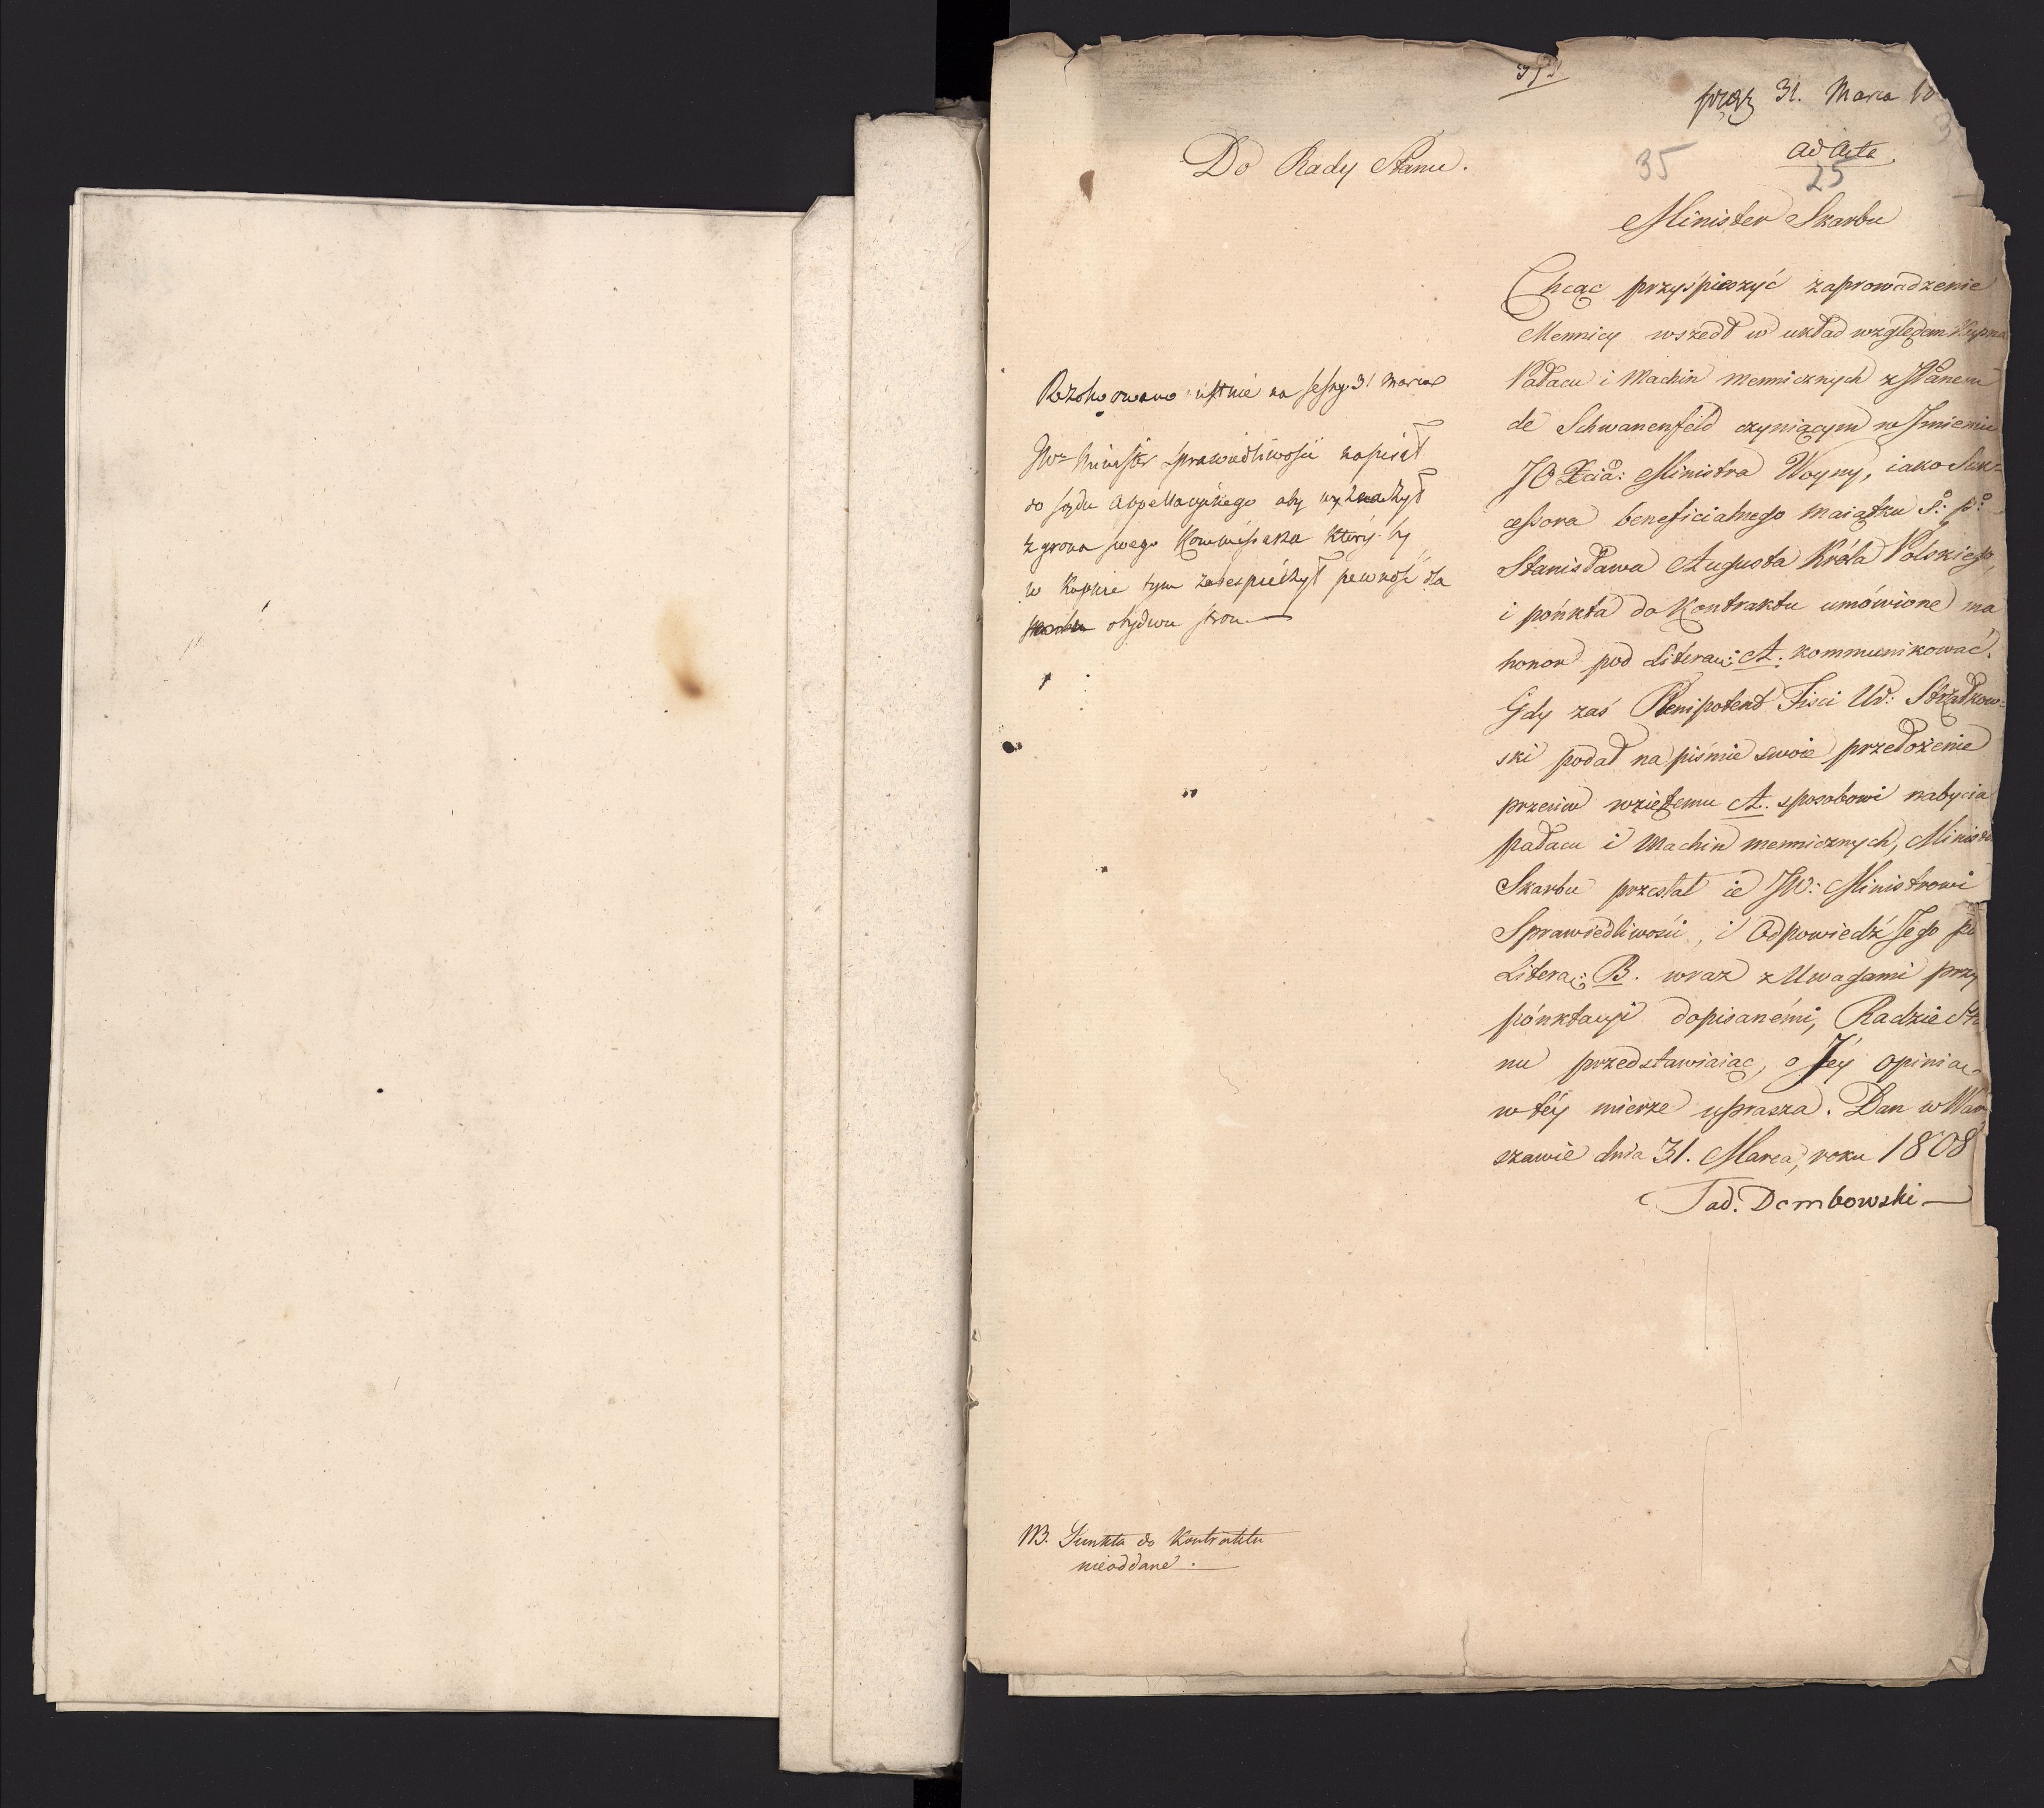 prez 31. Marca 18
ad acta.
35
25
Do Rady Stanu.
Minister Skarbu
Chcąc przyśpieszyć zaprowadzenie
Mennicy wszedł w układ względem Kupna
Pałacu i Machin mennicznych z JPanem
de Schwanenfeld czyniącym w Jmieniu
JO Xcia: Ministra Woyny, iako Suk=
cessora beneficialnego maiątku ś: p:
Stanisława Augusta Króla Polskiego,
i pońkta do Kontraktu umówione ma
honor pod Literą: A. kommunikować.
Gdy zaś Plenipotent Fisci Ur: Strzałkow=
ski podał na piśmie swoie przełożenie
przeciw wziętemu A. sposobowi nabycia
pałacu i Machin mennicznych, Minister
Skarbu przesłał ie JW: Ministrowi
Sprawiedliwości, i Odpowiedź Jego po
Literą: B. wraz z Uwagami przy
pónktacyi dopisanémi, Radzie Sta
nu przedstawiaiąc, o Jéy opinią
w téy mierze uprasza. Dan w War
szawie dnia 31. Marca, roku 1808
Tad. Dembowski
Rezolwowano ustnie na sessyi 31 Marca
JWny Minister sprawiedliwości napisał
do sądu Appellacyinego aby wyznaczył
z grona swego Kommissarza który by
w Kupnie tym zabespieczył pewność dla
obydwu stron.
NB. Punkta do Kontraktu
nieoddane.